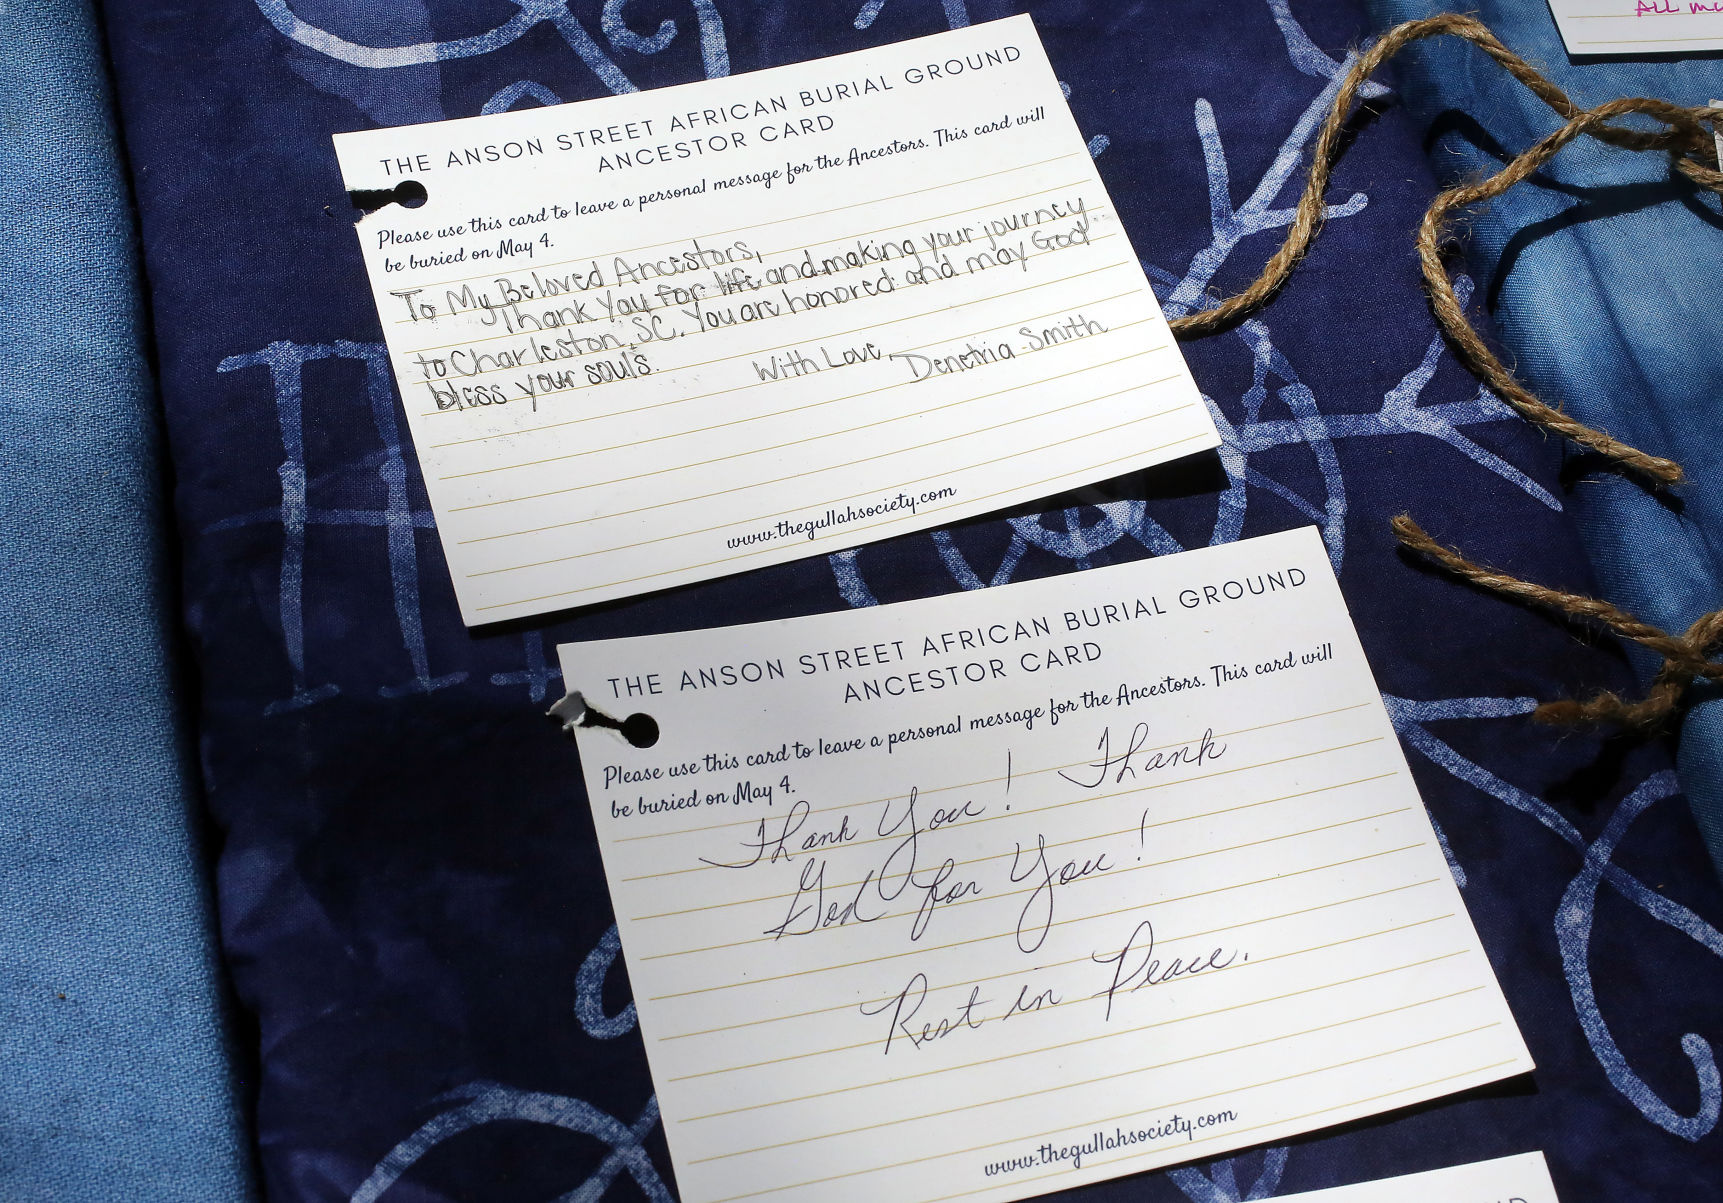 ALL
THE ANSON STREET AFRICAN BURIAL GROUND
ANCESTOR CARD
Please use this card to leave a personal message for the Ancestors. This card will
be buried on May 4.
To My Beloved Ancestors,
Thank You for life and making your journey
to Charleston, SC. You are honored and may God
bless your souls.
With Love, Denetria Smith
www.thegullahsociety.com
THE ANSON STREET AFRICAN BURIAL GROUND
ANCESTOR CARD
Please use this card to leave a personal message for the Ancestors. This card will
be buried on May 4.
Thank You! Thank
God for You!
Rest in Peace.
www.thegullahsociety.com